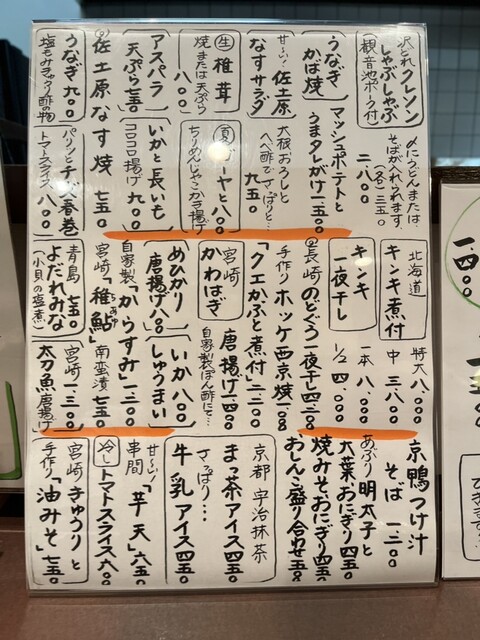 沢どれクレソン
しゃぶしゃぶ
(観音池ポーク付)
〆にうどんまたは
そばが入れられます。
(各)三五〇
二、八〇〇
うなぎ
かば焼
マッシュポテトと
うまタレがけ 一、五〇〇
甘〜い! 佐土原
なすサラダ
大根おろしと
へべ酢でさっぱりと…
九五〇
生 椎茸
焼または天ぷら
八〇〇
夏 ゴーヤと
ちりめんじゃこかき揚げ
八〇〇
アスパラ
天ぷら 七五〇
いかと長いも
コロコロ揚げ 九〇〇
佐土原なす焼 七五〇
うなぎ 九〇〇
塩もみきゅうり酢の物
パリッとチーズ春巻
トマトスライス 八〇〇
北海道
キンキ煮付
特大 八、〇〇〇
中 三、八〇〇
キンキ
一夜干し
一本 八、〇〇〇
1/2 四、〇〇〇
長崎 のどぐろ一夜干 四、二〇〇
手作り ホッケ西京焼
「クエかぶと煮付」二、二〇〇
宮崎
かわはぎ
唐揚げ 一、四〇〇
自家製ぽん酢にて…
めひかり
唐揚げ 八〇〇
いか
しゅうまい
八〇〇
自家製「からすみ」一、二〇〇
宮崎「稚鮎」南蛮漬 七五〇
青島 七五〇
よだれみな
(小貝の塩煮)
宮崎 一、三〇〇
太刀魚唐揚げ
京鴨つけ汁
そば 一、二〇〇
あぶり明太子と
大葉、おにぎり 四五〇
焼みそ、おにぎり 四五〇
おしんこ盛り合わせ 五五〇
京都 宇治抹茶
まっ茶アイス 四五〇
さっぱり…
牛乳アイス 四五〇
甘〜い!
串間「芋天」六五〇
冷し トマトスライス 六〇〇
宮崎 きゅうりと
手作り「油みそ」七五〇